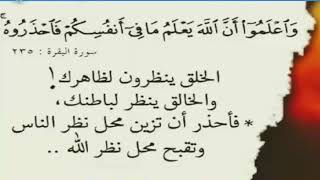 وَٱعۡلَمُوٓاْ أَنَّ ٱللَّهَ يَعۡلَمُ مَا فِيٓ أَنفُسِكُمۡ فَٱحۡذَرُوهُۚ
سورة البقرة : ٢٣٥
الخلق ينظرون لظاهرك!
والخالق ينظر لباطنك،
* فأحذر أن تزين محل نظر الناس
وتقبح محل نظر الله ..